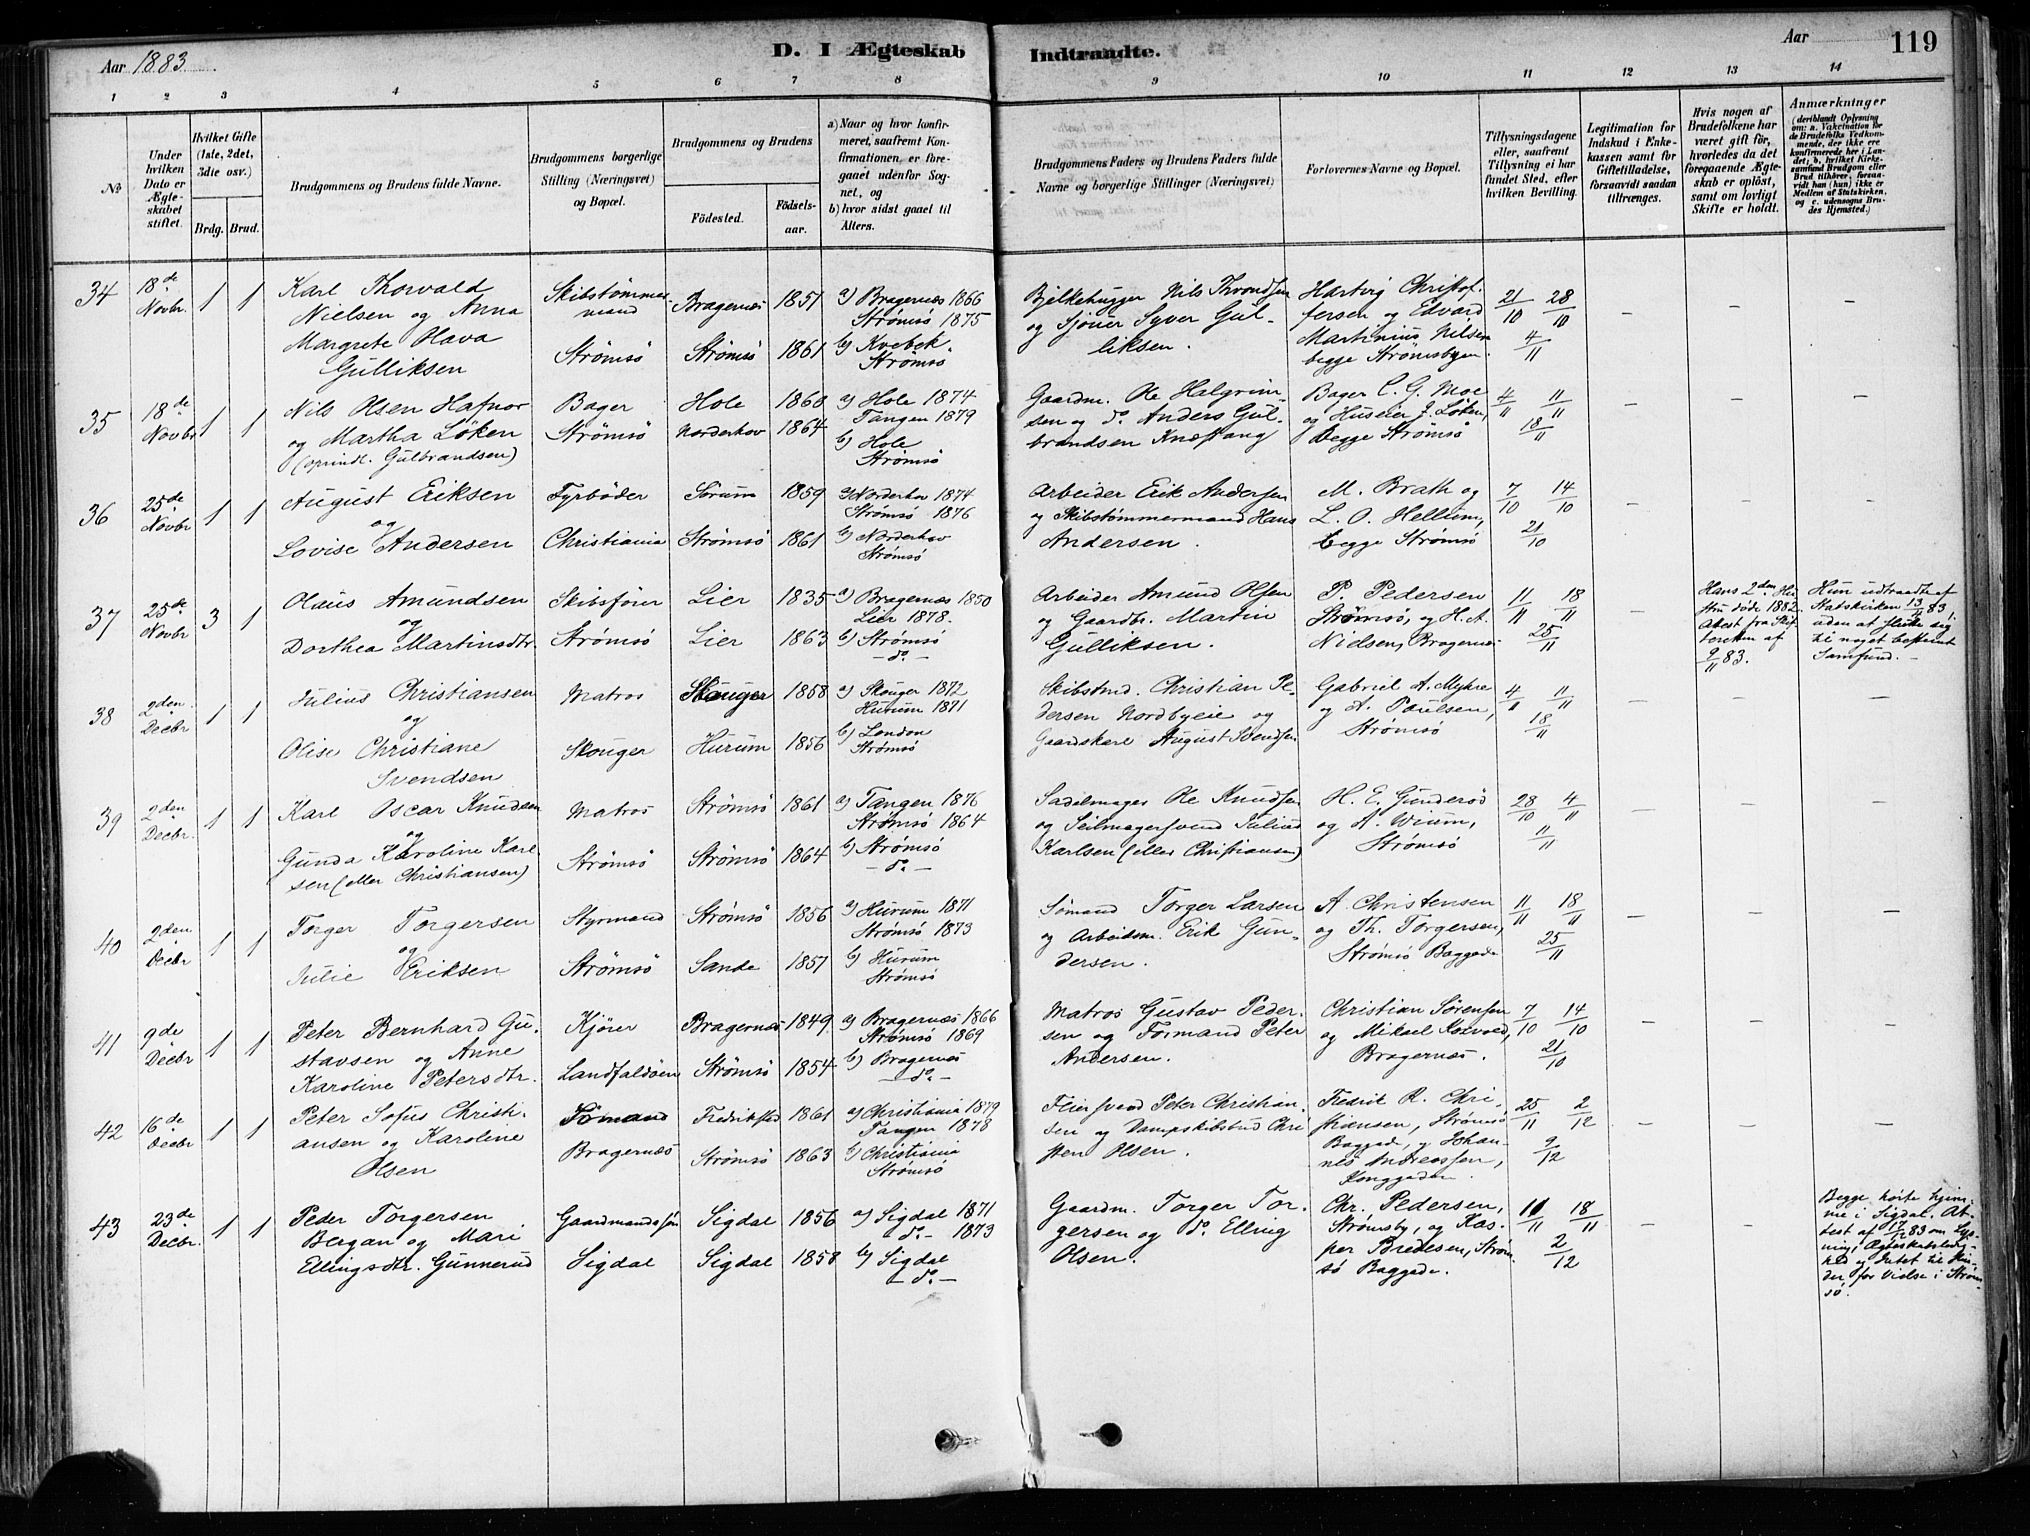 Aar 1883.
D. I Ægteskab Indtraadte.
Aar
119
1 2 3 4 5 6 7 8 9 10 11 12 13 14
№
Under hvilken Dato er Ægteskabet stiftet.
Hvilket Gifte (1ste, 2det, 3die osv.)
Brdg. Brud.
Brudgommens og Brudens fulde Navne.
Brudgommens borgerlige Stilling (Næringsvei) og Bopæl.
Brudgommens og Brudens
Födested.
Födselsaar.
a) Naar og hvor konfirmeret, saafremt Konfirmationen er foregaaet udenfor Sognet, og
b) hvor sidst gaaet til Alters.
Brudgommens Faders og Brudens Faders fulde Navne og borgerlige Stillinger (Næringsvei)
Forlovernes Navne og Bopæl.
Tillysningsdagene eller, saafremt Tillysning ei har fundet Sted, efter hvilken Bevilling.
Legitimation for Indskud i Enkekassen samt for Giftetilladelse, forsaavidt saadan tiltrænges.
Hvis nogen af Brudefolkene har været gift før, hvorledes da det foregaaende Ægteskab er oplöst, samt om lovligt Skifte er holdt.
Anmærkninger
(deriblandt Oplysning om: a. Vakcination for de Brudefolks Vedkommende, der ikke ere konfirmerede her i Landet; b. hvilket Kirkesamfund Brudgom eller Brud tilhörer, forsaavidt han (hun) ikke er Medlem af Statskirken, og c. udensogns Brudes Hjemsted.)
34 18de Novbr. 1 1
Karl Thorvald
Nielsen og Anna
Margrete Hava
Gulliksen
Skibstømmermand
Strömsö
Bragernæs 1851
Strömsö 1861
a) Bragernæs 1866
Strömsö 1875
b) Kvebek
Strömsö
Bjelkehugger Nils Throndsen
og Sjouer Syver Gulliksen.
Hartvig Christoffersen og Edvard
Martinius Nilsen
begge Strömsbyen.
21/10 28/10
4/11
– – –
35 18de Novbr 1 1
Nils Olsen Hafnor
og Martha Löken
(oprindl. Gulbrandsen)
Bager
Strömsö
Hole 1860
Norderhov 1864
a) Hole 1874
Tangen 1879
b) Hole
Strömsö
Gaardm. Ole Halgrimsen og do. Anders Gulbrandsen Knæstang
Bager C. G. Moe
og Huseier J. Löken,
Begge Strömsö
4/11 11/11
18/11
– – –
36 25de Novbr 1 1
August Eriksen
og
Lovise Andersen
Fyrböder
Christiania
Sörum 1859
Strömsö 1861
a) Norderhov 1874
Strömsö 1876
b) Norderhov
Strömsö
Arbeider Erik Andersen
og Skibstømmermand Hans
Andersen.
M. Brath og
L. O. Hellum,
begge Strömsö
7/10 14/10
21/10
– – –
37 25de Novbr 3 1
Olaus Amundsen
og
Dorthea Martinsdtr.
Skibsförer
Strömsö
Lier 1835
Lier 1863
a) Bragernæs 1850
Lier 1878.
b) Strömsö
– do. –
Arbeider Amund Olsen
og Gaardbr. Martin
Gulliksen.
P. Pedersen
Strömsö, og H. A.
Nielsen, Bragernæs
11/11 18/11
25/11
–
Hans 2den Hustru döde 1882.
Atest fra Skifteretten af
9/11 83.
Hun udtraadt af
Statskirken 13/11 83,
uden at slutte sig
til noget bestemt
Samfund. –
38 2den Decbr 1 1
Julius Christiansen
og
Olise Christiane
Svendsen
Matros
Skouger
Skouger 1858
Hurum 1856
a) Skouger 1872
Hurum 1871
b) London
Strömsö
Skibstmd. Christian Pedersen Nordbyeie og
Gaardskarl August Svendsen
Gabriel A. Myhre
og A. Paulsen,
Strömsö
4/11 11/11
18/11
– – –
39 2den Decbr. 1 1
Karl Oscar Knudsen
og
Gunda Karoline Karlsen (eller Christiansen)
Matros
Strömsö
Strömsö 1861
Strömsö 1864
a) Tangen 1876
Strömsö 1864
b) Strömsö
– do. –
Sadelmager Ole Knudsen
og Seilmagersvend Julius
Karlsen (eller Christiansen)
H. E. Gunderöd
og A. Wium,
Strömsö
28/10 4/11
11/11
– – –
40 2den Decbr 1 1
Torger Torgersen
og
Julie Eriksen
Styrmand
Strömsö
Strömsö 1856
Sande 1857
a) Hurum 1871
Strömsö 1873
b) Hurum
Strömsö
Sömand Torger Larsen
og Arbeidsm. Erik Gundersen.
A. Christensen
og Th. Torgersen,
Strömsö Baggade
11/11 18/11
25/11
– – –
41 9de Decbr 1 1
Peter Bernhard Gustavsen og Anne
Karoline Petersdtr.
Kjörer
Landfaldöen
Bragernæs 1849
Strömsö 1854
a) Bragernæs 1866
Strömsö 1869
b) Bragernæs
– do. –
Matros Gustav Pedersen og Formand Peter
Andersen.
Christian Sörensen
og Mikael Kolvold,
Bragernæs.
7/10 14/10
21/10
– – –
42 16de Decbr 1 1
Peter Sofus Christiansen og Karoline
Olsen
Sömand
Bragernæs
Fredrikstad 1861
Strömsö 1863
a) Christiania 1879
Tangen 1878
b) Christiania
Strömsö
Feiersvend Peter Christiansen og Dampskibstmd Christen Olsen.
Fredrik R. Christiansen, Strömsö
Baggade, og Johannes Andreassen,
Konggaden.
25/11 2/12
9/12
– – –
43 23de Decbr. 1 1
Peder Torgersen
Bergan og Mari
Ellingsdtr. Gunnerud
Gaardmandssön
Sigdal
Sigdal 1856
Sigdal 1858
a) Sigdal 1871
– do. – 1873
b) Sigdal
– do. –
Gaardm. Torger Torgersen og do. Elling
Olsen.
Chr. Pedersen,
Strömsby, og Kasper Bredesen, Strömsö Baggade.
11/11 18/11
2/12
– –
Begge hörte hjemme i Sigdal. Attest af 17/12 83 om Lysning, Ægteskabsledighed og Intet til Hinder for Vielse i Strömsö.